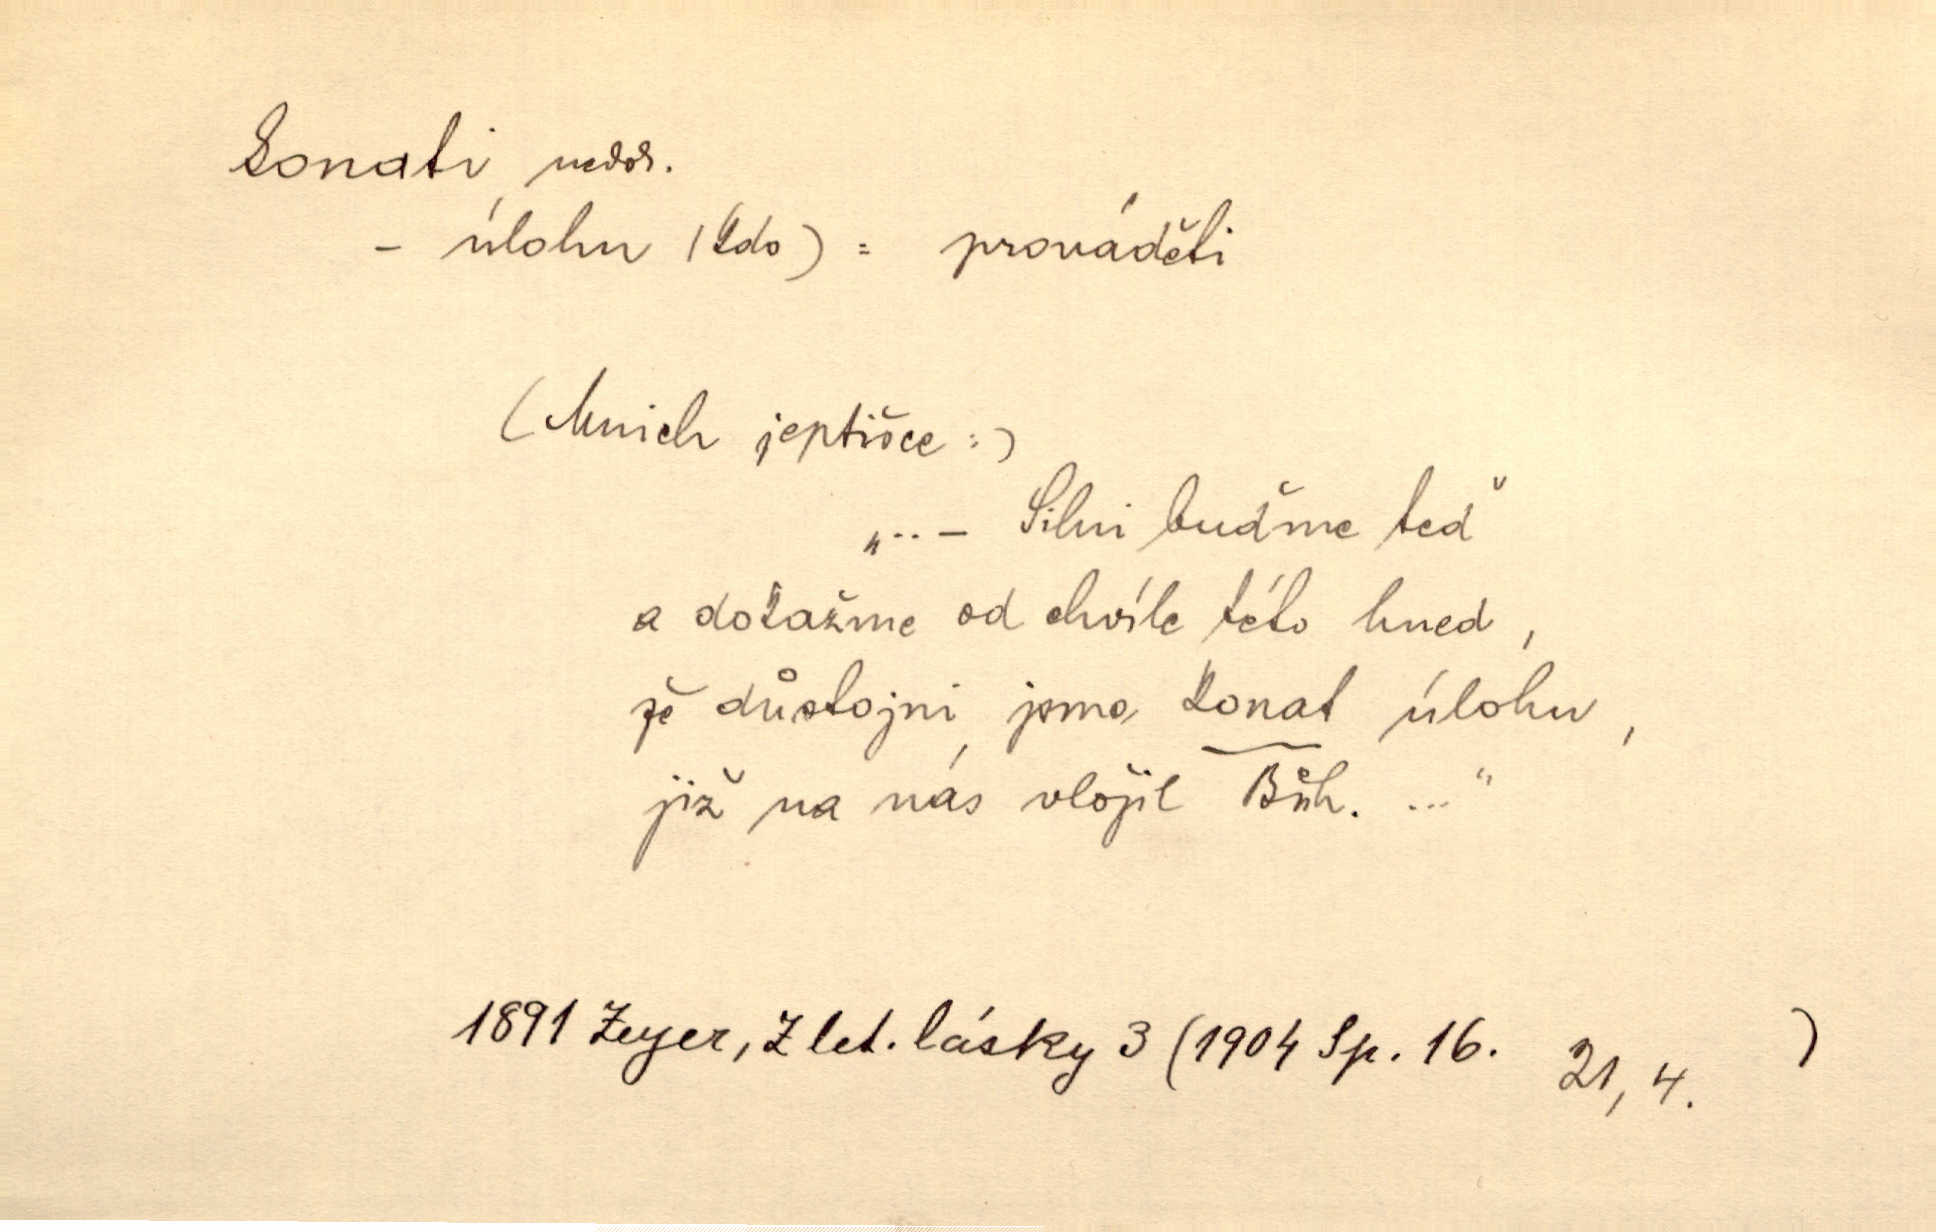 konati nedok.
- úlohu (kdo) = prováděti
(Mnich jeptišce:)
„.. — Silni buďme teď
a dokažme od chvíle této hned,
že důstojni jsme konat úlohu,
již na nás vložil Bůh. ..."
1891 Zeyer, Z let. lásky 3 (1904 Sp. 16. 21, 4. )